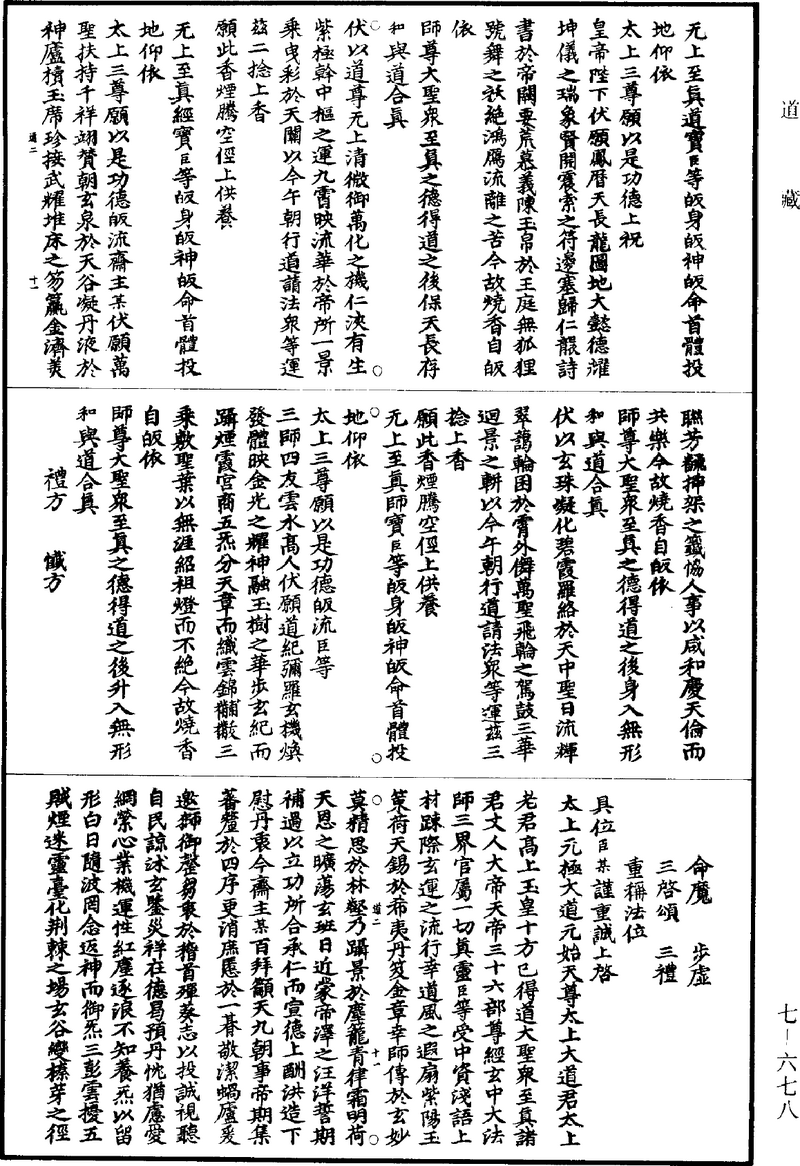 道藏
无上至真道寶臣等皈身皈神皈命首體投
地仰依
太上三尊願以是功德上祝
皇帝陛下伏願鳳曆天長龍圖地大懿德耀
坤儀之瑞象賢開震索之符邊塞歸仁
書於帝闕要荒慕義陳玉帛於王庭無狐狸
號舞之妖絕鴻鴈流離之苦今故燒香自皈
依
師尊大聖衆至真之德得道之後保天長存
和與道合真
伏以道尊无上清微御萬化之機仁浹有生
紫極斡中樞之運九霄映流華於帝所一景
乘曳彩於天關以今午朝行道請法衆等運
茲二捻上香
願此香煙騰空徑上供養
无上至真經寶臣等皈身皈神皈命首體投
地仰依
太上三尊願以是功德皈流齋主某伏願萬
聖扶持千祥翊贊朝玄泉於天谷凝丹液於
神廬櫝玉席珍接武耀堆床之笏籯金濟美
道二 十一
聯芳插架之籤恊人事以咸和慶天倫而
共樂今故燒香自皈依
師尊大聖衆至真之德得道之後身入無形
和與道合真
伏以玄珠凝化碧霞羅絡於天中聖日流輝
翠藹輪囷於霄外儛萬聖飛輪之駕鼓三華
迴景之軿以今午朝行道請法衆等運茲三
捻上香
願此香煙騰空徑上供養
无上至真師寶臣等皈身皈神皈命首體投
地仰依
太上三尊願以是功德皈流臣等
三師四友雲水高人伏願道紀彌羅玄機煥
發體映金光之耀神融玉樹之華步玄紀而
躡煙霞宮商五炁分天章而織雲錦黼黻三
乘敷聖葉以無涯紹祖燈而不絕今故燒香
自皈依
師尊大聖衆至真之德得道之後升入無形
和與道合真
禮方 懺方
命魔 步虛
三啓頌 三禮
重稱法位
具位臣某謹重誠上啓
太上元極大道元始天尊太上大道君太上
老君高上玉皇十方已得道大聖衆至真諸
君丈人大帝天帝三十六部尊經玄中大法
師三界官屬一切真靈臣等受中資淺語上
材踈際玄運之流行幸道風之遐扇紫陽玉
筴荷天錫於希夷丹笈金章幸師傳於玄妙
莫精思於林壑乃躡景於塵籠青律霜明荷
道二 十一
天恩之曠蕩玄班日近蒙帝澤之汪洋誓期
補過以立功所合承仁而宣德上酬洪造下
慰丹衷今齋主某百拜籲天九朝事帝期集
蕃釐於四序更消庶慝於一朞敬潔蝸廬爰
邀師御罄芻衷於稽首殫葵志以投誠視聽
自民諒沐玄鑒災祥在德曷預丹忱猶慮愛
網縈心業機運性紅塵逐浪不知養炁以留
形白日隨波罔念返神而御炁三彭雲擾五
賊煙迷靈臺化荆棘之場玄谷變榛芽之徑
七-六七八